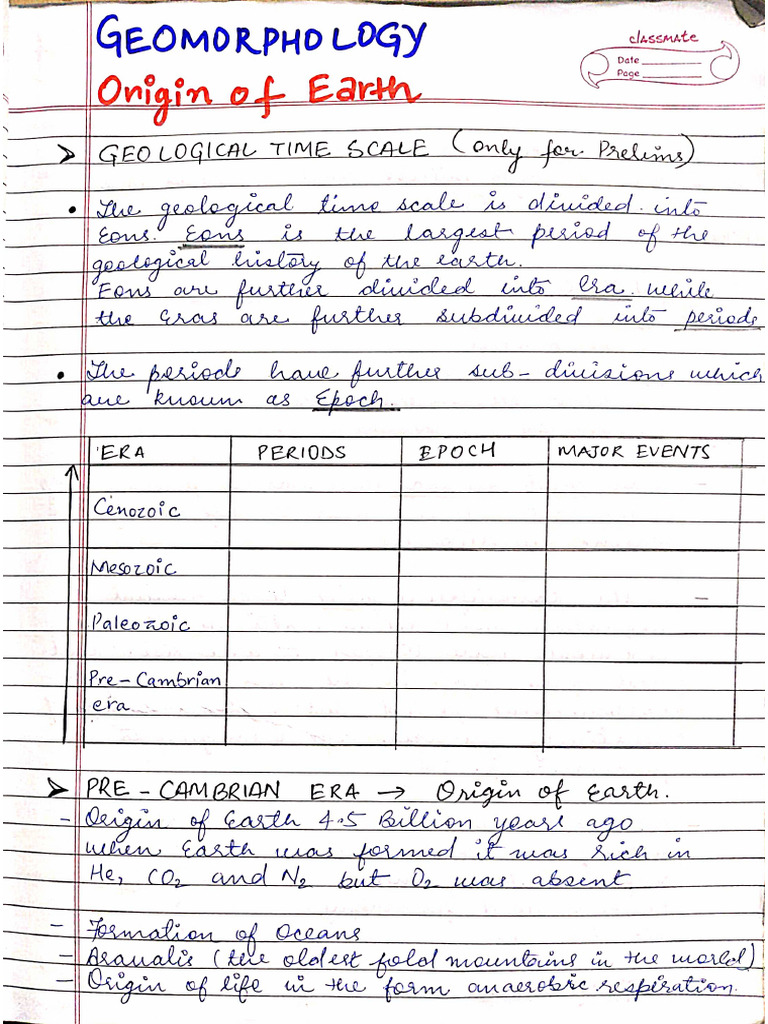 GEOMORPHOLOGY
classmate
Date
Page
Origin of Earth
GEOLOGICAL TIME SCALE (only for Prelims)
• The geological time scale is divided into
Eons. Eons is the largest period of the
geological history of the earth.
Eons are further divided into Era while
the Eras are further subdivided into periods
• The periods have further sub-divisions which
are known as Epoch.
ERA PERIODS EPOCH MAJOR EVENTS
Cenozoic
Mesozoic
Paleozoic
Pre-Cambrian
era
PRE-CAMBRIAN ERA → Origin of Earth.
- Origin of Earth 4.5 Billion years ago
when Earth was formed it was rich in
He, CO2 and N2 but O2 was absent
- Formation of Oceans
- Aravalis (the oldest fold mountains in the world)
- Origin of life in the form anaerobic respiration.